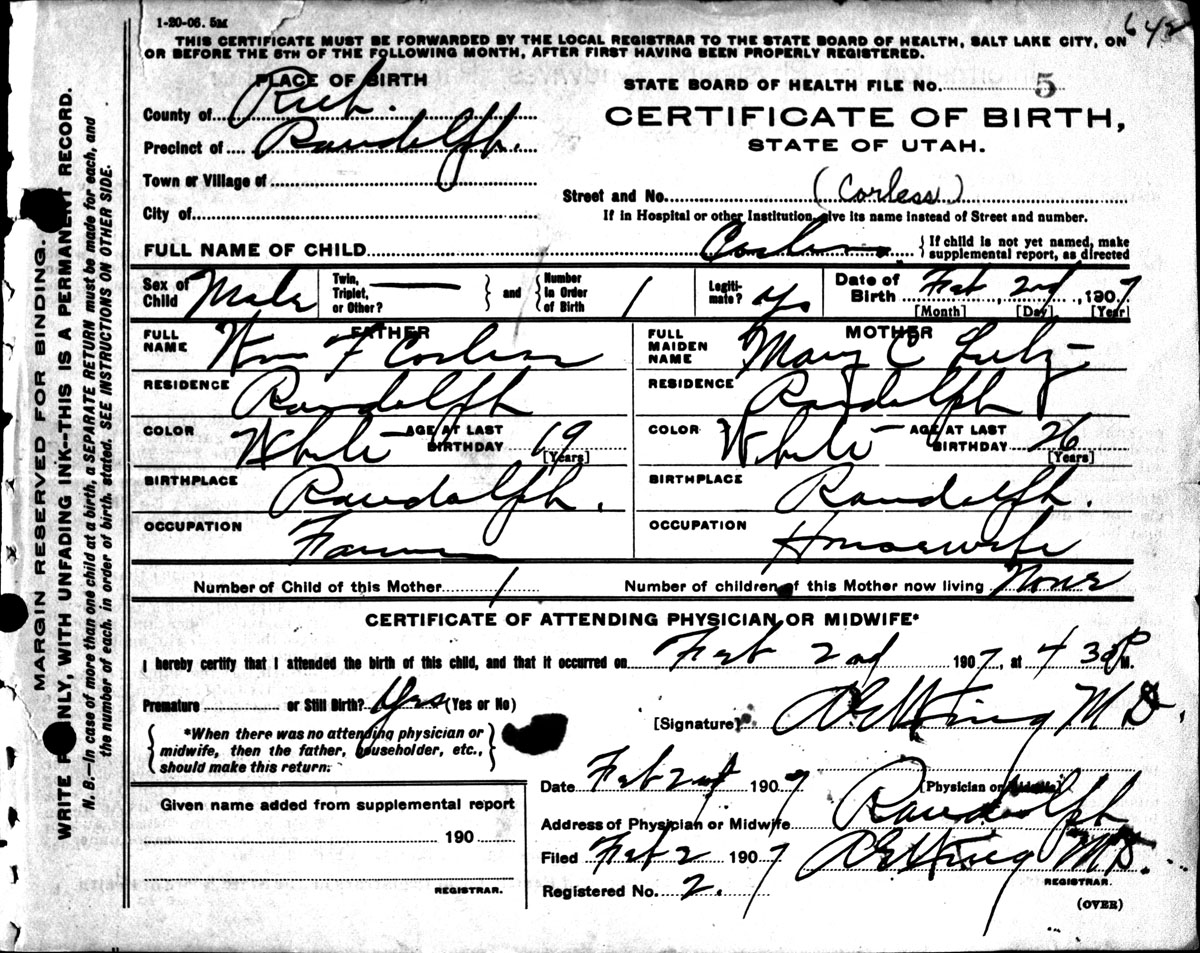 1-20-06. 5M
642
THIS CERTIFICATE MUST BE FORWARDED BY THE LOCAL REGISTRAR TO THE STATE BOARD OF HEALTH, SALT LAKE CITY, ON
OR BEFORE THE 5TH OF THE FOLLOWING MONTH, AFTER FIRST HAVING BEEN PROPERLY REGISTERED.
PLACE OF BIRTH
STATE BOARD OF HEALTH FILE NO. 5
County of Rich.
CERTIFICATE OF BIRTH,
Precinct of Randolph.
STATE OF UTAH.
Town or Village of
Street and No. (Corless)
City of
If in Hospital or other Institution, give its name instead of Street and number.
FULL NAME OF CHILD Corless {If child is not yet named, make
supplemental report, as directed
Sex of Child Male
Twin, Triplet, or Other? — } and { Number in Order of Birth 1
Legiti- mate? Yes
Date of Birth Feb, 2nd, 1907
[Month] [Day] [Year]
FATHER
FULL NAME Wm F Corless
MOTHER
FULL MAIDEN NAME Mary C
RESIDENCE Randolph
RESIDENCE Randolph
COLOR White AGE AT LAST BIRTHDAY [Years]
COLOR White AGE AT LAST BIRTHDAY 26 [Years]
BIRTHPLACE Randolph.
BIRTHPLACE Randolph.
OCCUPATION Farmer
OCCUPATION Housewife
Number of Child of this Mother 1 Number of children of this Mother now living None
CERTIFICATE OF ATTENDING PHYSICIAN OR MIDWIFE*
I hereby certify that I attended the birth of this child, and that it occurred on Feb 2nd 1907, at 4 30 P M.
Premature or Still Birth? Yes (Yes or No)
[Signature] M D.
{*When there was no attending physician or
midwife, then the father, householder, etc.,
should make this return.}
Date Feb 2nd 1907
[Physician or Midwife]
Given name added from supplemental report
190
REGISTRAR.
Address of Physician or Midwife Randolph
Filed Feb 2 1907 M D.
REGISTRAR.
Registered No. 2.
(OVER)
MARGIN RESERVED FOR BINDING.
WRITE PLAINLY, WITH UNFADING INK--THIS IS A PERMANENT RECORD.
N. B.—In case of more than one child at a birth, a SEPARATE RETURN must be made for each, and
the number of each. in order of birth. stated. SEE INSTRUCTIONS ON OTHER SIDE.